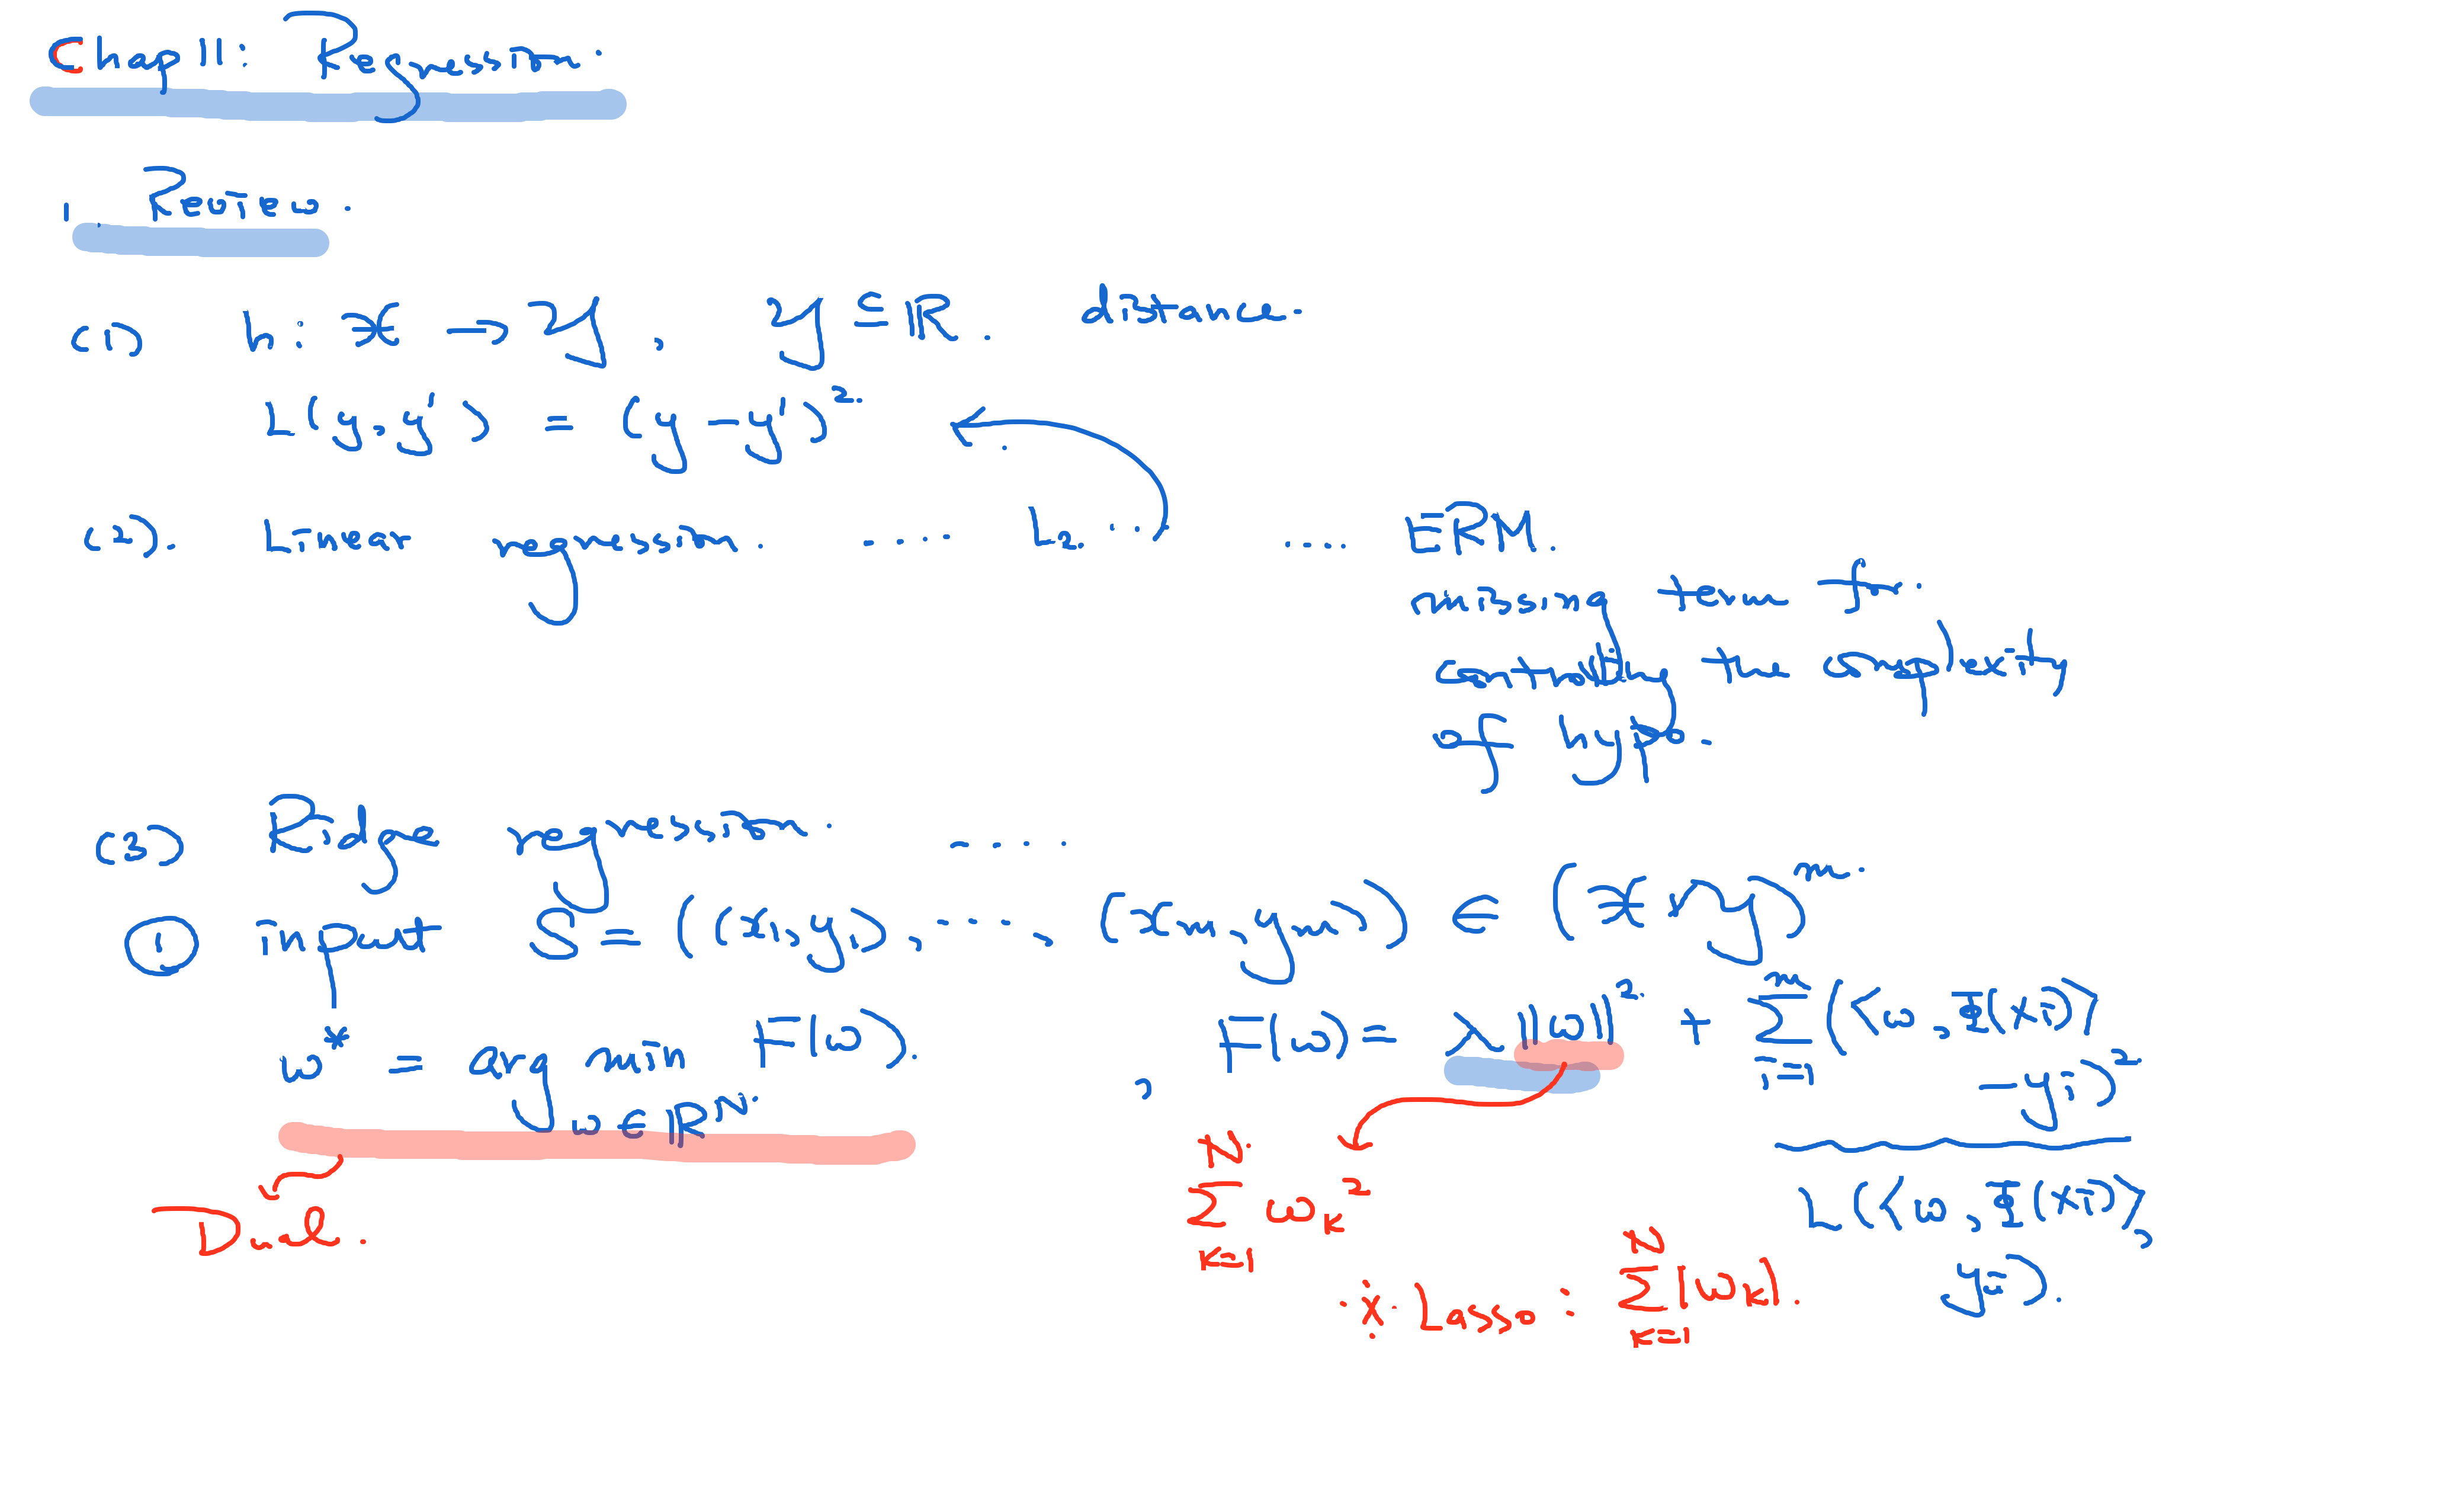 Chap11: Regression.
1. Review.
(1) h: X → Y, Y ⊆ R. distance.
L(y, y') = (y - y')².
(2). Linear regression. .... h. ... .... ERM.
missing term for
controlling the complexity
of hyp.
(3) Ridge regression. ....
① input S = ((x₁, y₁), ...., (xₘ, yₘ)) ∈ (X × Y)ᵐ.
w* = arg min_{w∈R^N} F(w). , F(w) = λ ||w||² + Σ_{i=1}^m (⟨w, Φ(xᵢ)⟩
- yᵢ)²
Dual.
Σ_{k=1}^N w_k²
L(⟨w, Φ(xᵢ)⟩,
yᵢ).
※ Lasso: Σ_{k=1}^N |w_k|.